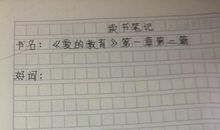 读书笔记
书名：《爱的教育》第一章第二篇
好词：